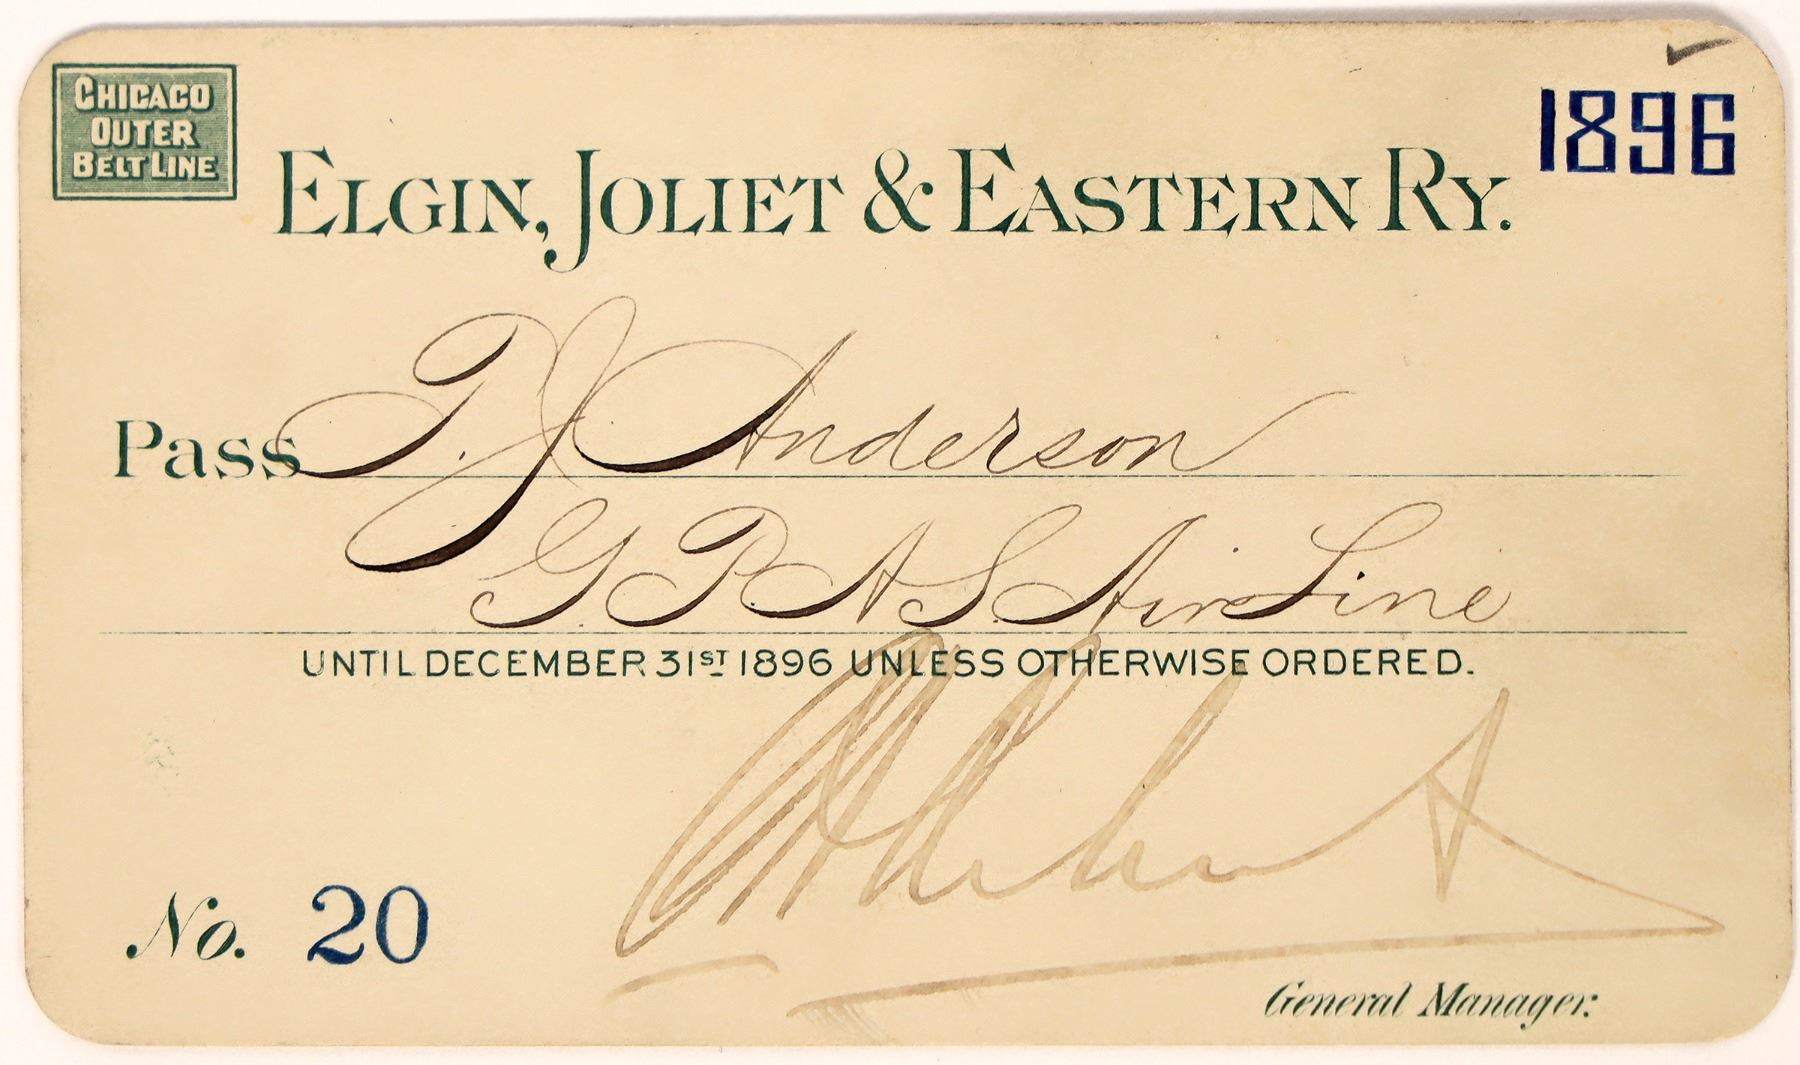 CHICAGO
OUTER
BELT LINE
1896
ELGIN, JOLIET & EASTERN RY.
Pass T. J. Anderson
G. P. A. S. Air Line
UNTIL DECEMBER 31ST 1896 UNLESS OTHERWISE ORDERED.
No. 20
General Manager.